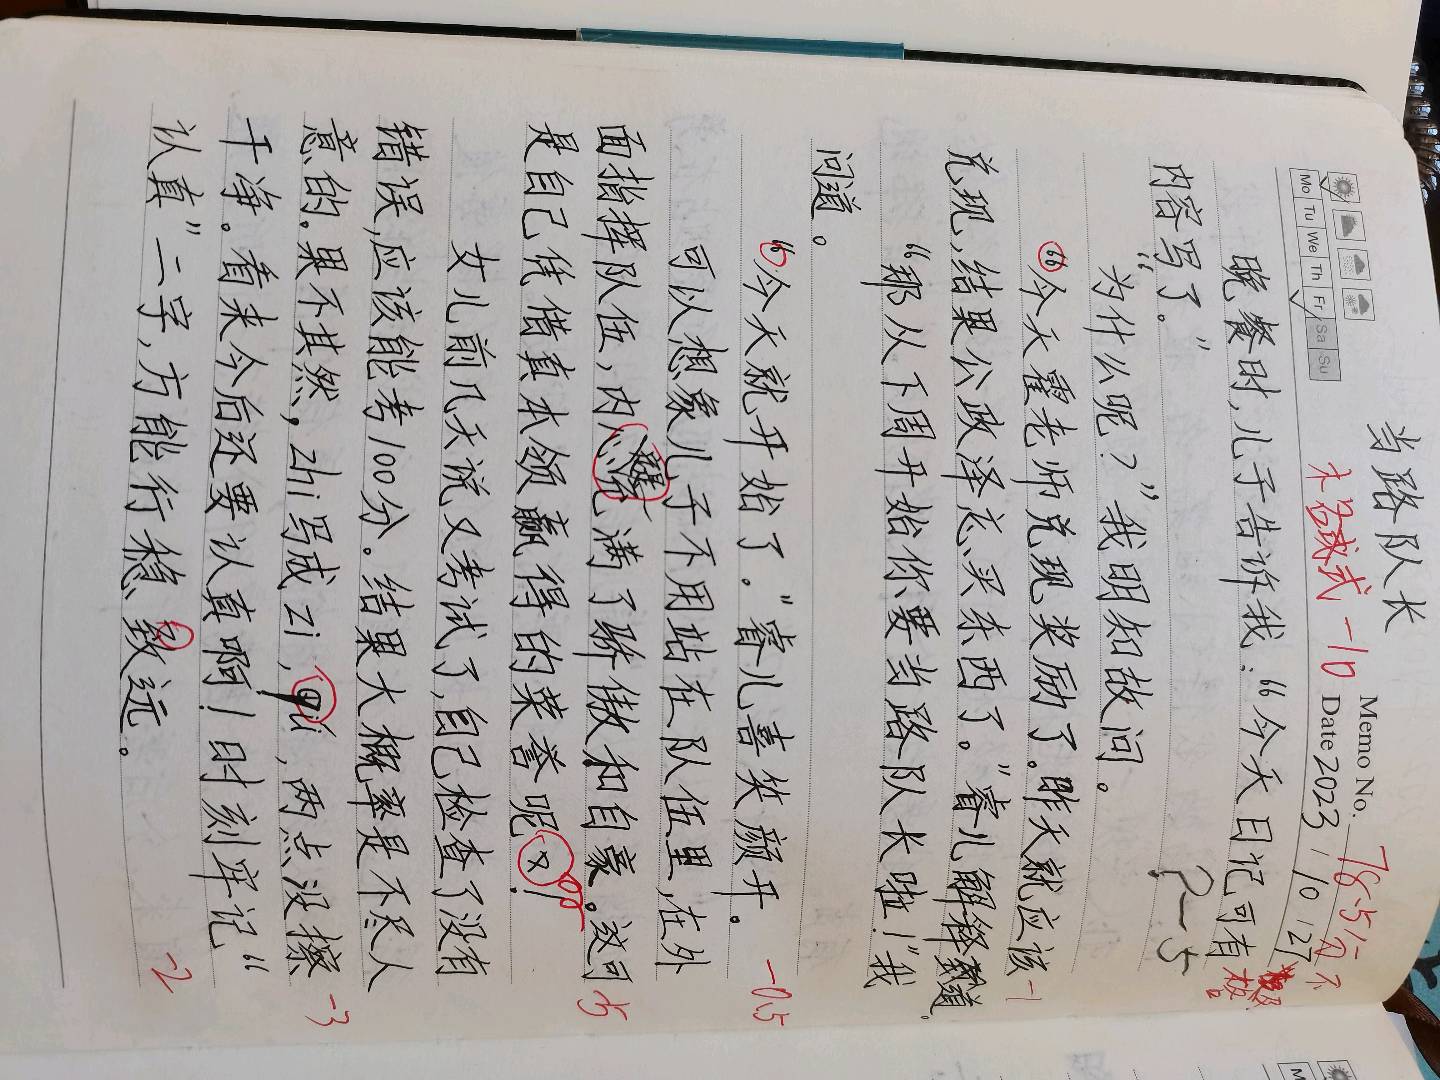 当路队长
Memo No.
78.5分
不
未名试式 -10
Mo Tu We Th Fr Sa Su
Date 2023 / 10 / 27
晚餐时,儿子告诉我:“今天日记可有
内容写了。”
?-5
“为什么呢?”我明知故问。
“今天霍老师兑现奖励了。昨天就应该
-1
兑现,结果公政泽忘买东西了。”睿儿解释道。
“那从下周开始你要当路队长啦!”我
问道。
“今天就开始了。”睿儿喜笑颜开。
-0.5
可以想象儿子不用站在队伍里,在外
面指挥队伍,内心充满了骄傲和自豪。这可
-5
是自己凭借真本领赢得的荣誉呢!
女儿前几天说又考试了,自己检查了没有
错误,应该能考100分。结果大概率是不尽人
意的。果不其然,zhi写成zi, ,两点没擦
-3
干净。看来今后还要认真啊!时刻牢记“
认真”二字,方能行稳致远。
-2